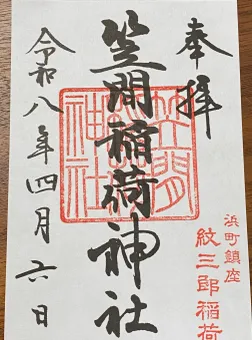 奉拝
浜町鎮座
紋三郎稲荷
笠間稲荷神社
笠間
稲荷
神社
令和八年四月六日